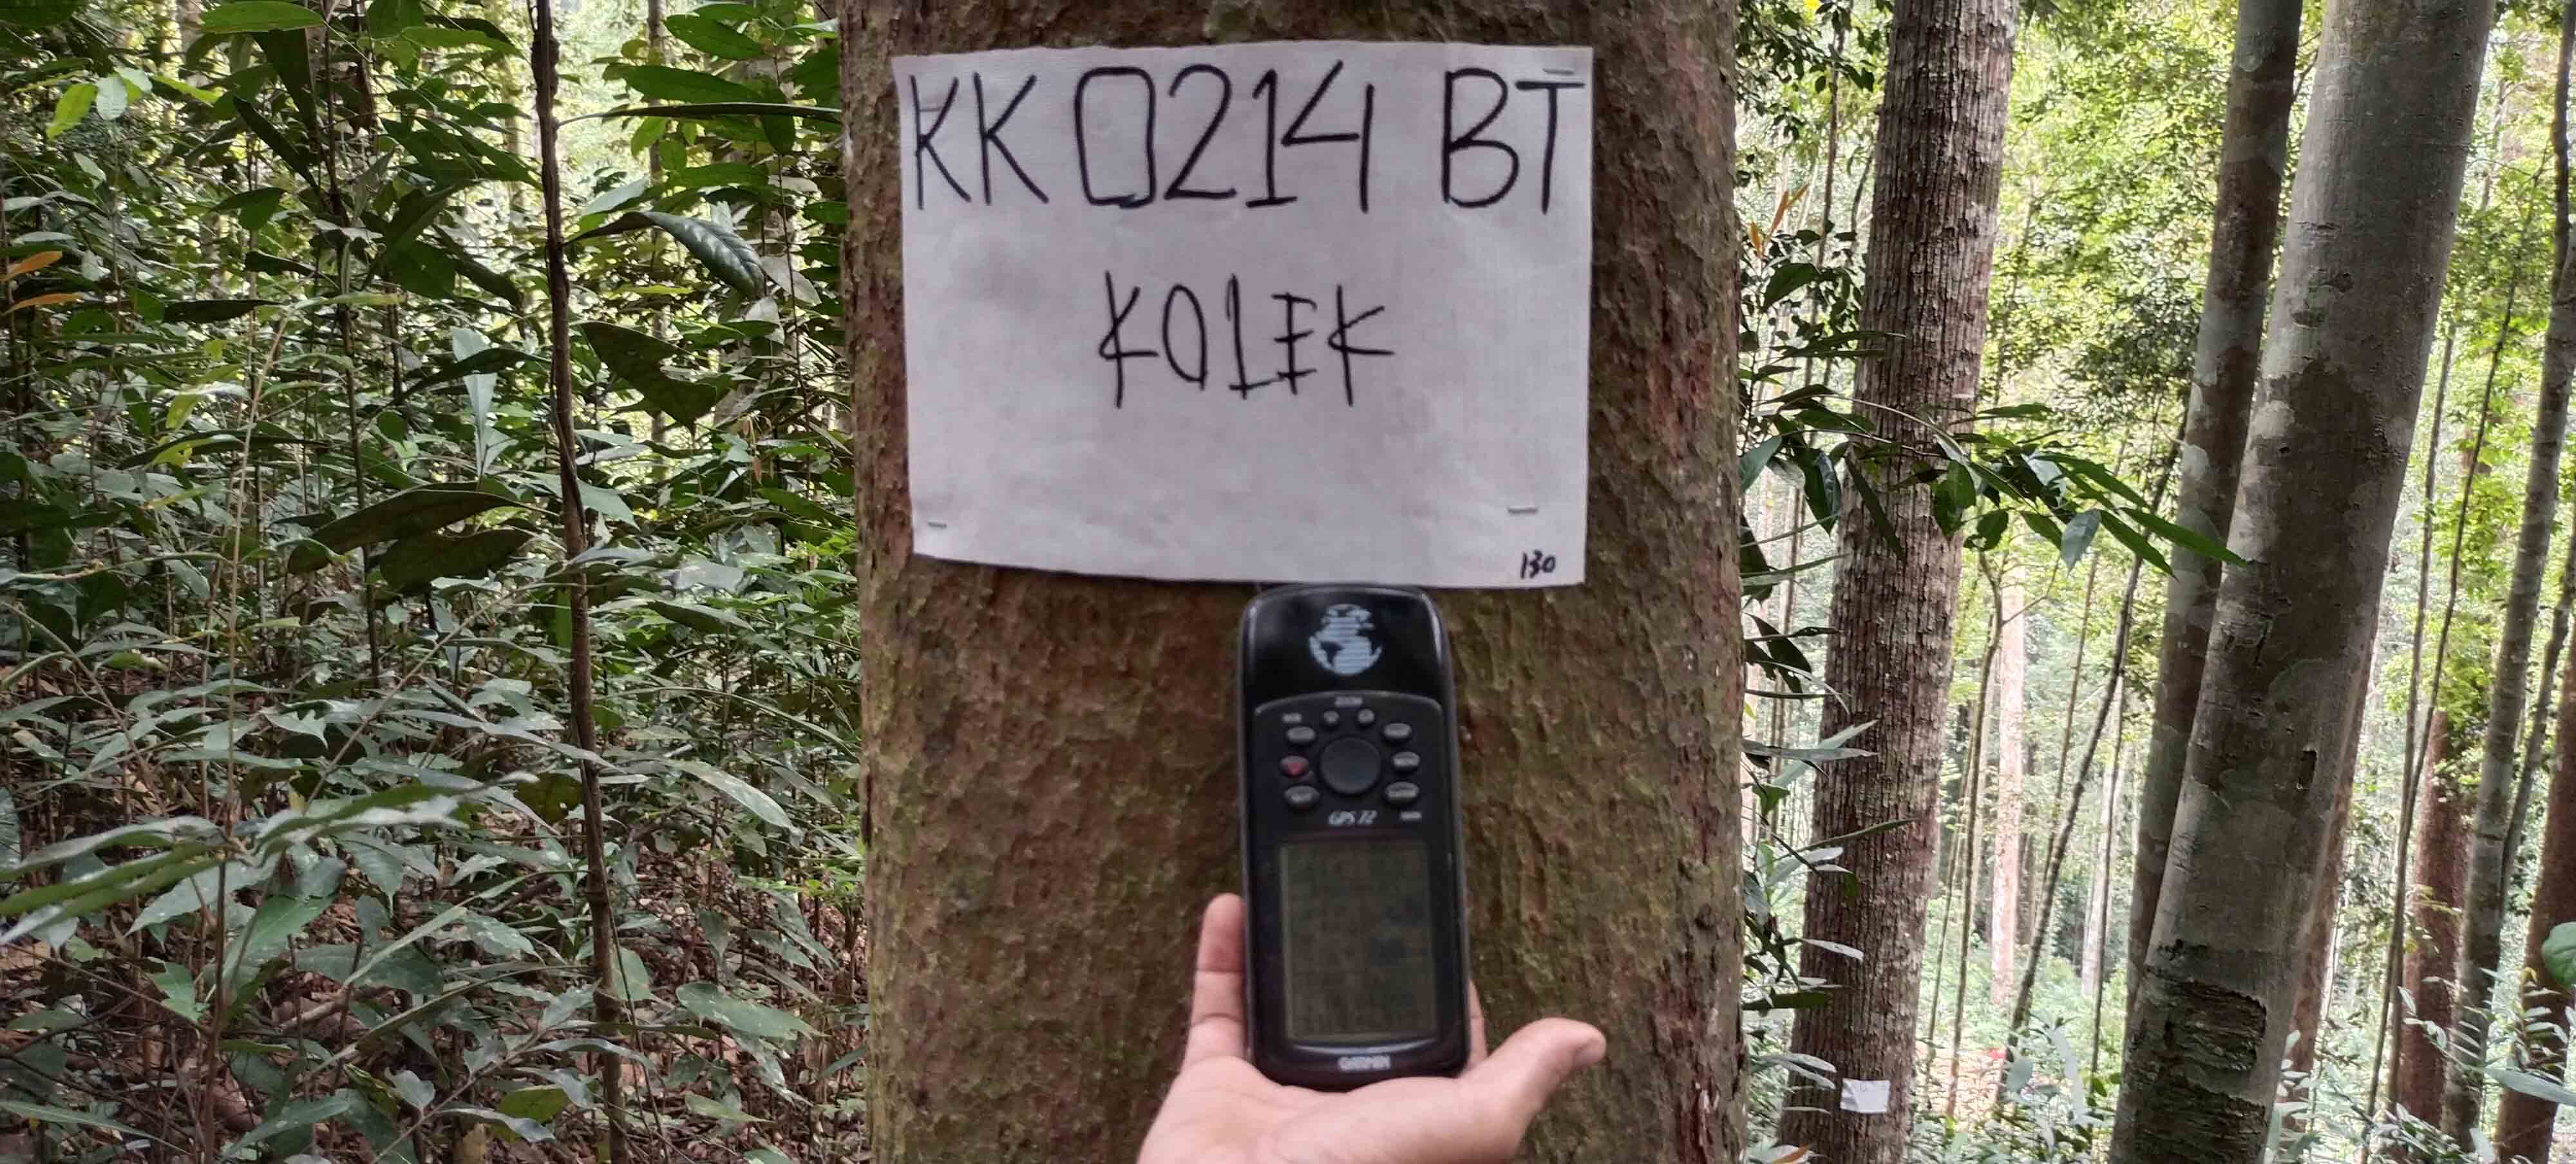 KK 0214 BT
KOLEK
130
ZOOM
GPS 72
GARMIN